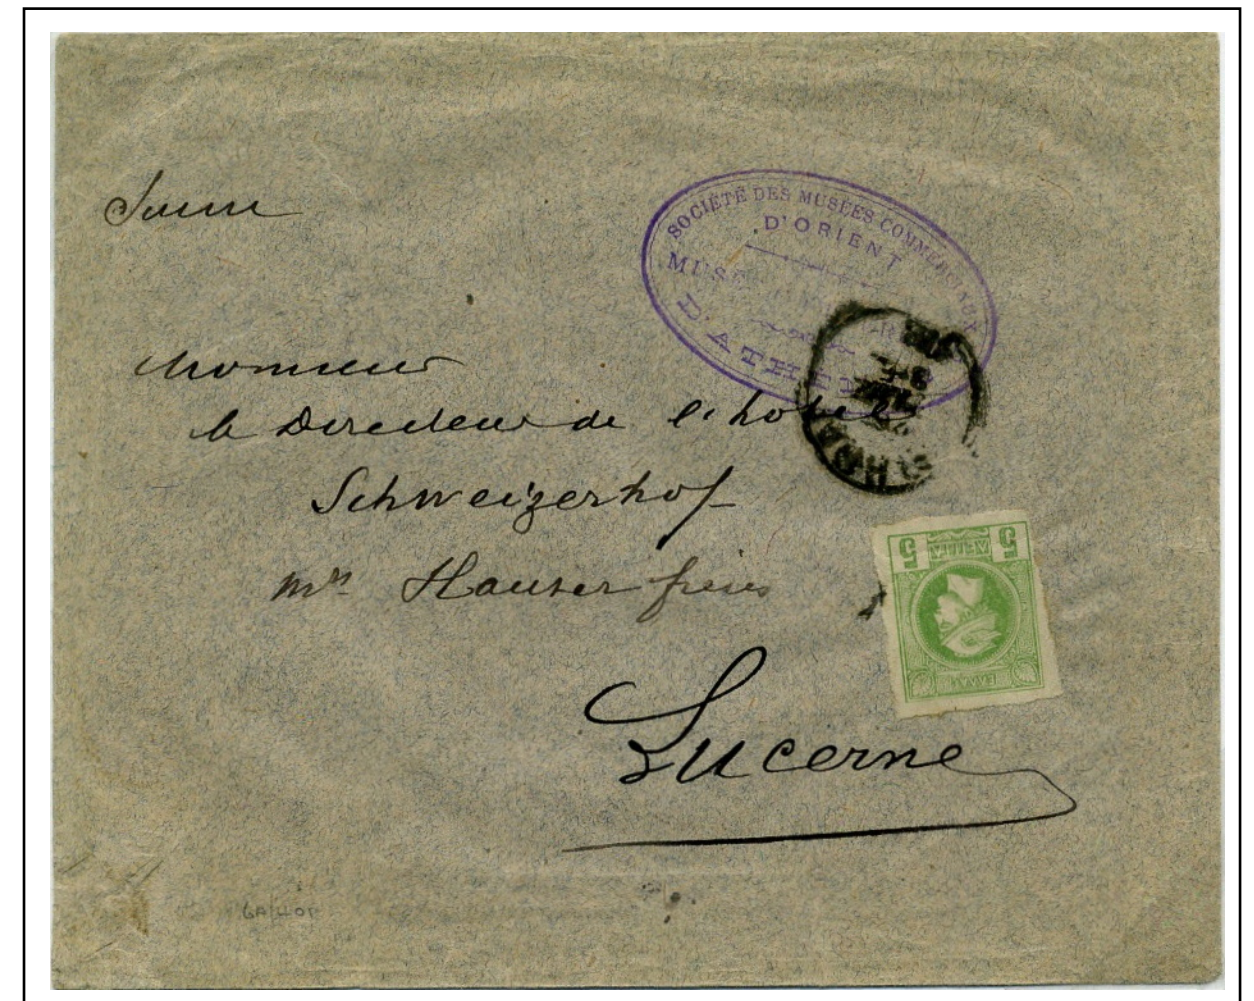 Suisse
SOCIÉTÉ DES MUSÉES COMMERCIAUX
D'ORIENT
MUSÉ
D'ATHÈN
Monsieur
le Directeur de l'hotel
Schweizerhof
Mrs Hauser frères
5 ΛΕΠΤΑ 5
ΕΛΛΑΣ
Lucerne
GALLOP